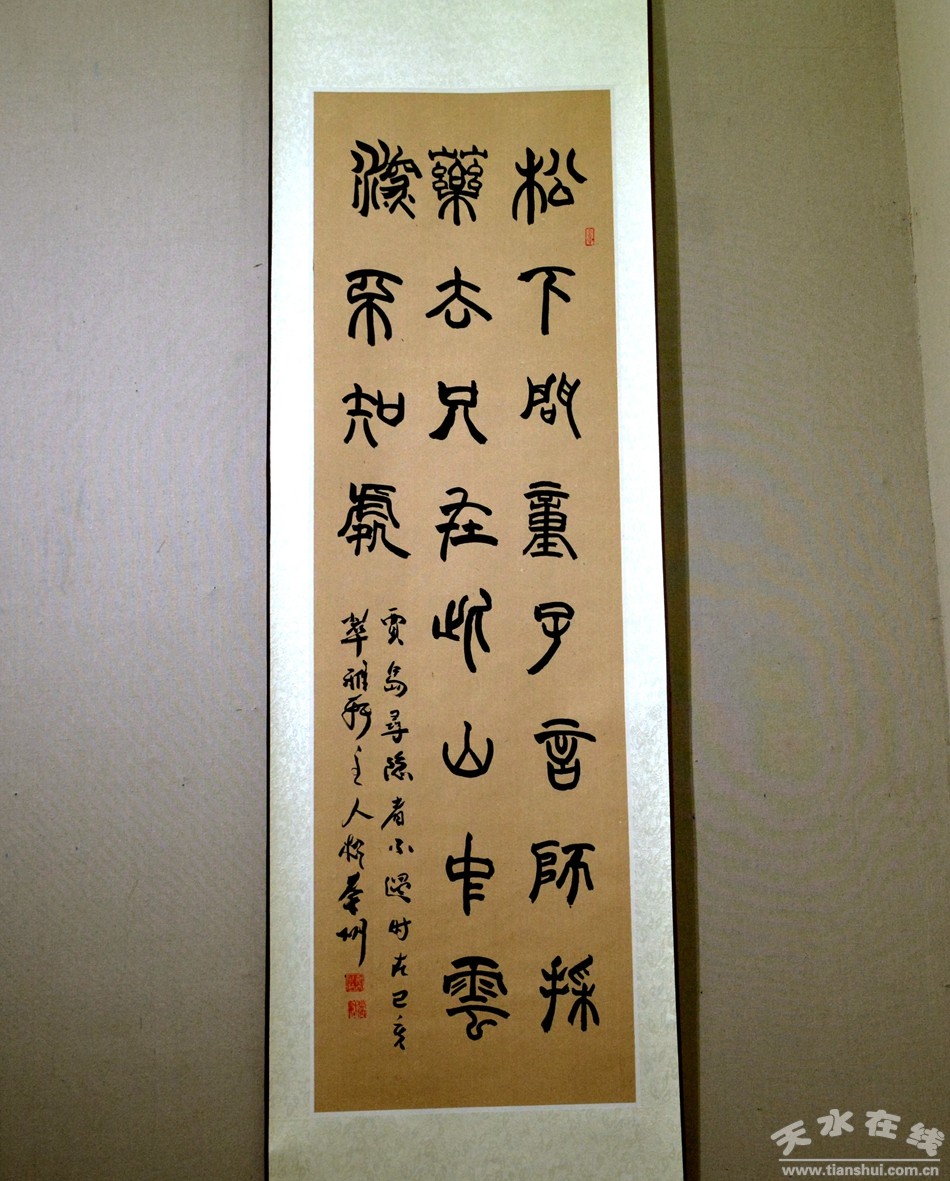 松下問童子言師採
藥去只在此山中雲
深不知處
賈島尋隱者不遇时在己亥
雅軒主人於秦州
天水在线
www.tianshui.com.cn